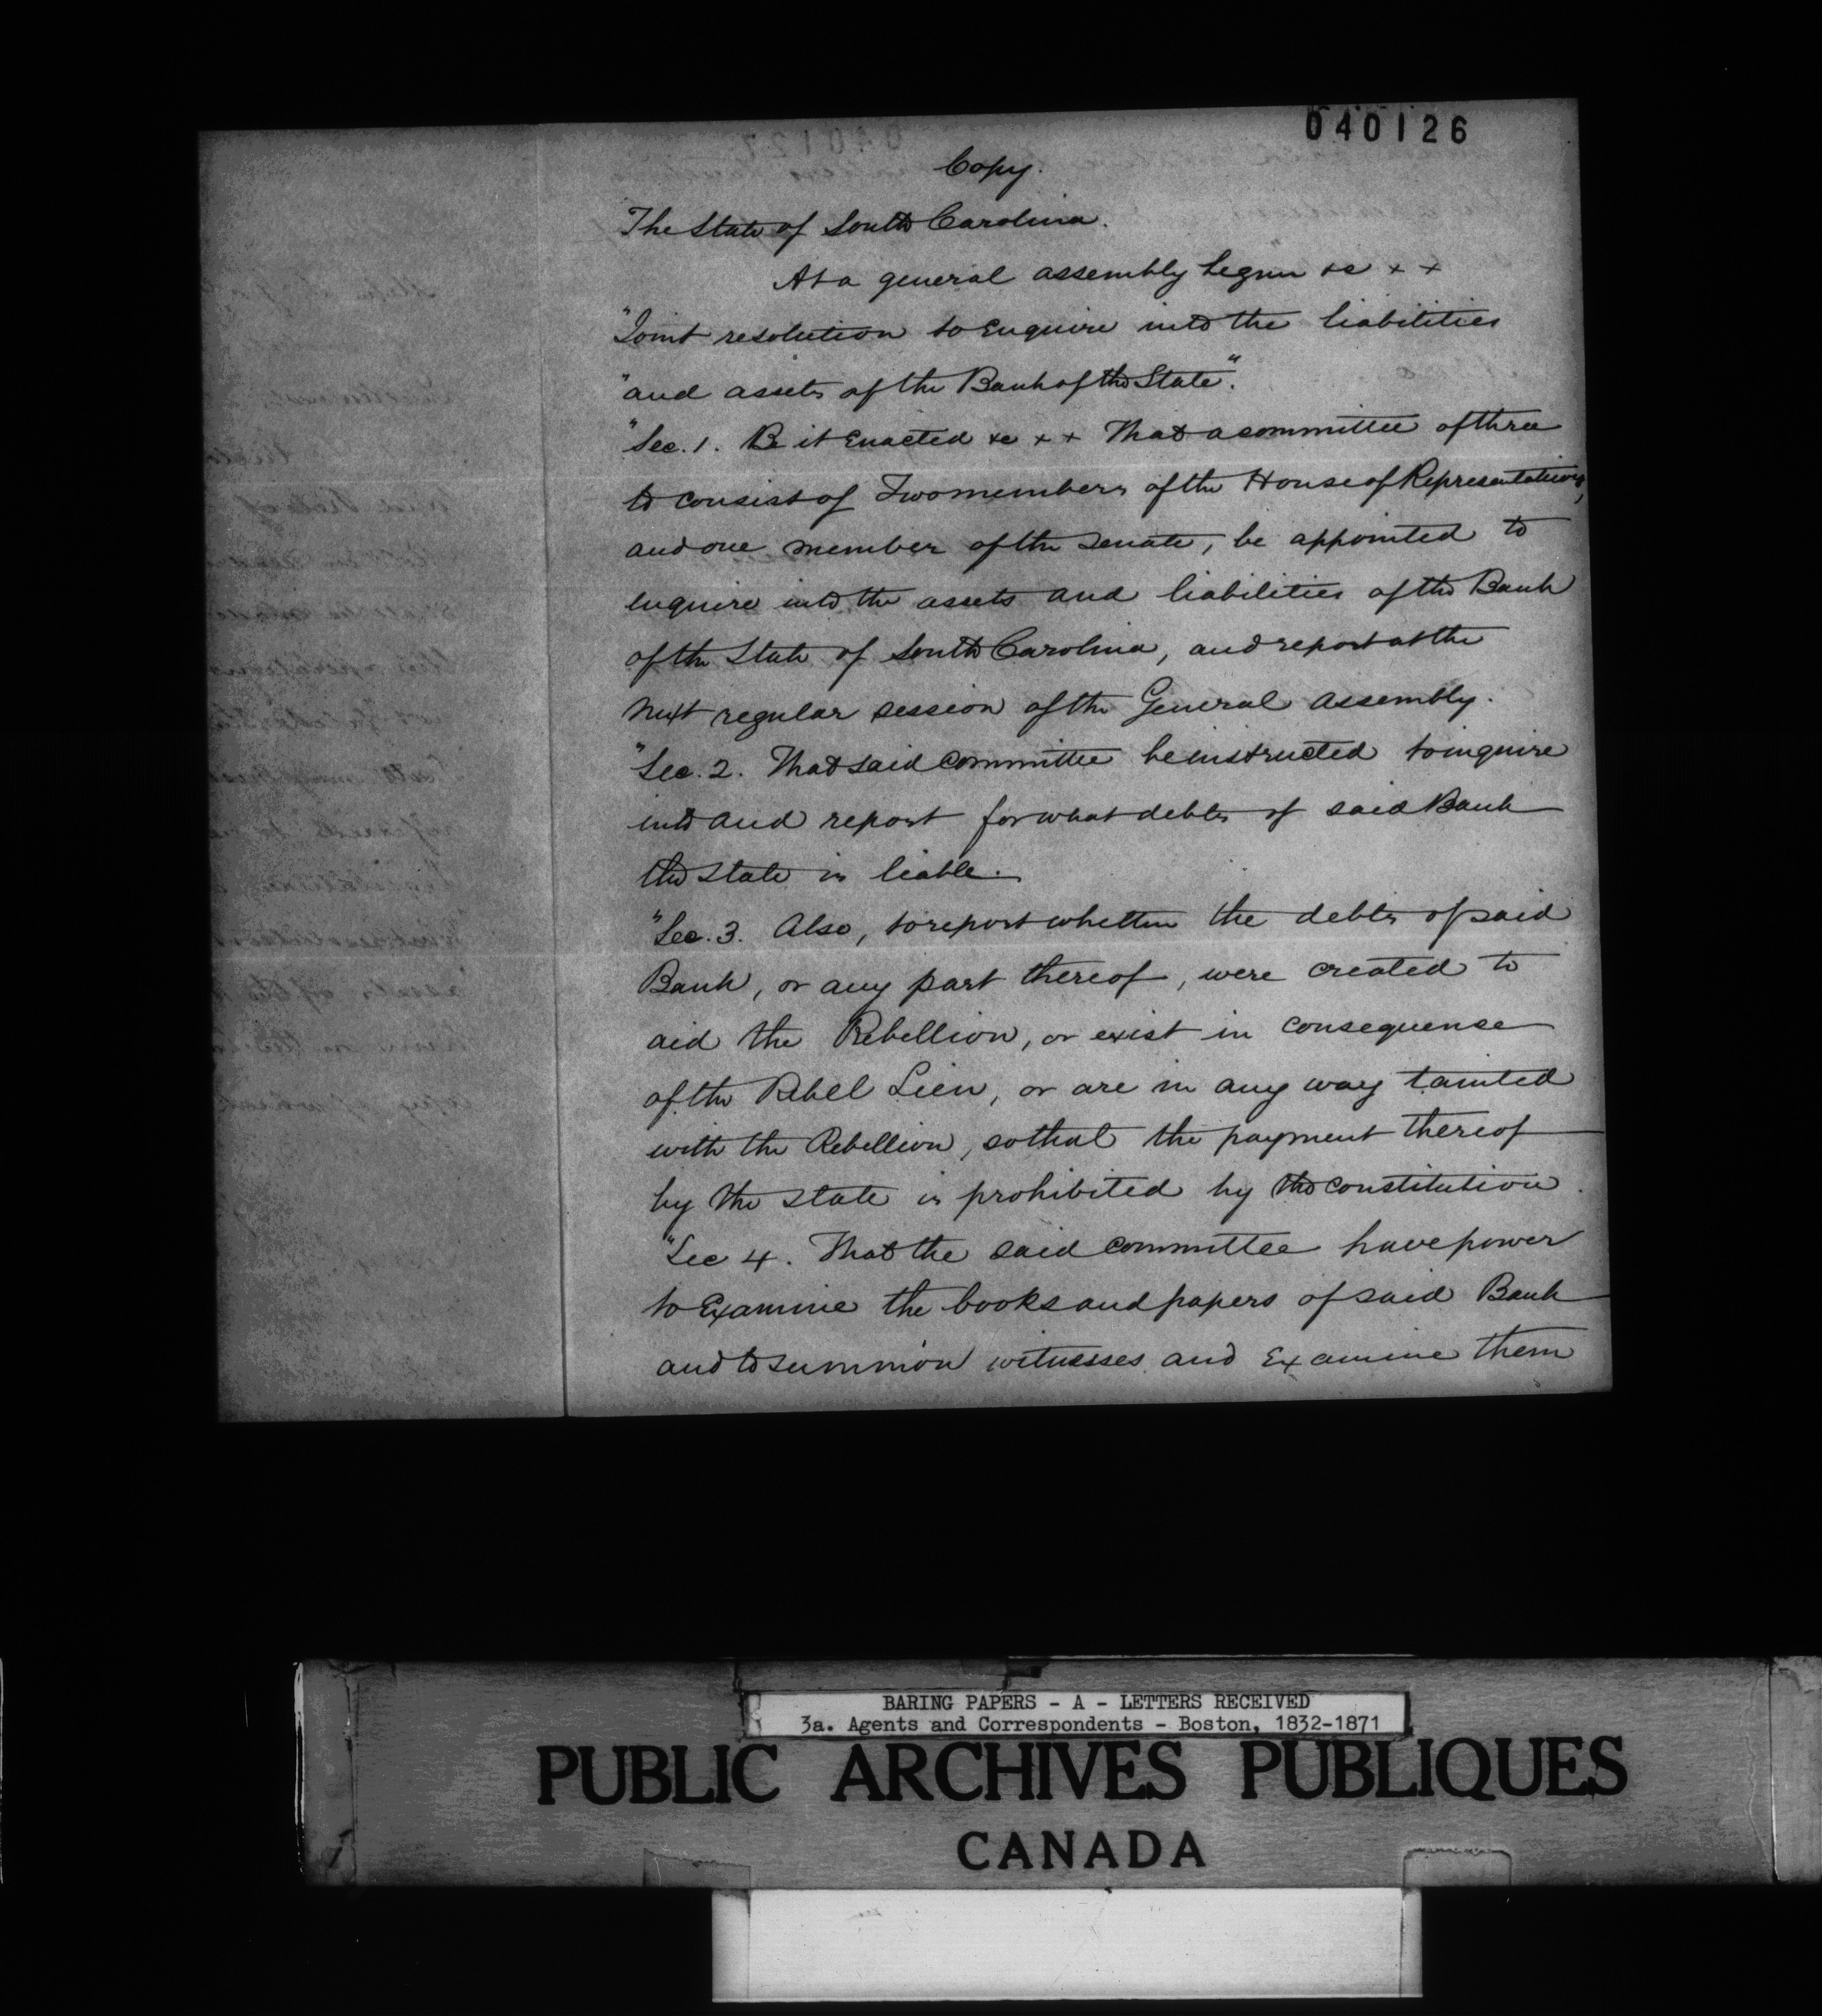 040126
Copy.
The State of South Carolina.
At a general assembly begun &c + +
"Joint resolution to Enquire into the liabilities
"and assets of the Bank of the State".
"Sec. 1. Be it Enacted &c + + That a committee of three
to consist of Two members of the House of Representatives,
and one member of the Senate, be appointed to
enquire into the assets and liabilities of the Bank
of the State of South Carolina, and report at the
next regular session of the General Assembly.
"Sec. 2. That said Committee be instructed to inquire
into and report for what debts of said Bank
the State is liable.
"Sec. 3. Also, to report whether the debts of said
Bank, or any part thereof, were created to
aid the Rebellion, or exist in consequense
of the Rebel Lien, or are in any way tainted
with the Rebellion, so that the payment thereof
by the State is prohibited by the constitution.
"Sec 4. That the said Committee have power
to Examine the books and papers of said Bank
and to summon witnesses and Examine them
BARING PAPERS - A - LETTERS RECEIVED
3a. Agents and Correspondents - Boston, 1832-1871
PUBLIC ARCHIVES PUBLIQUES
CANADA